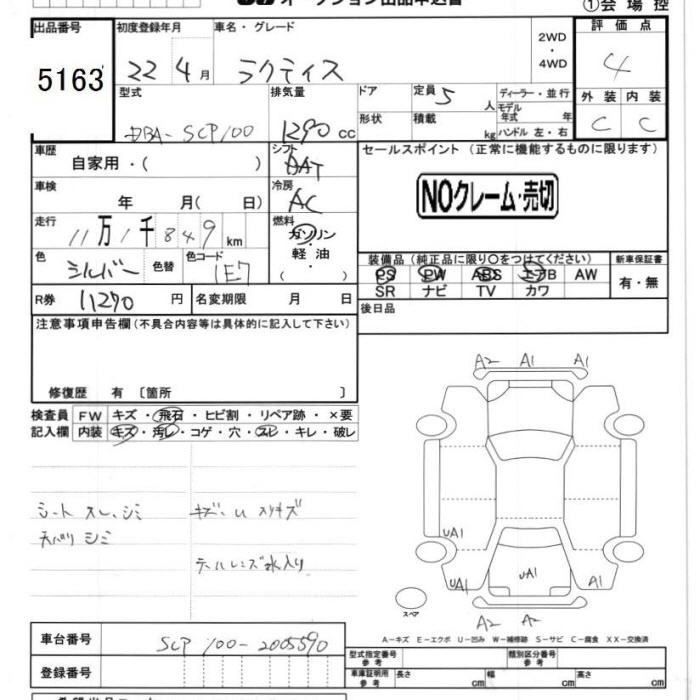 ①会場控
出品番号 初度登録年月 車名・グレード 2WD ・ 4WD 評価点
5163 22年4月 ラクティス 4
型式 排気量 ドア 定員 5 人 ディーラー・並行 外装 内装
DBA-SCP100 1290 cc 形状 積載 kg モデル年式 年 ハンドル 左・右 C C
車歴 自家用・( ) シフト AT セールスポイント(正常に機能するものに限ります)
車検 年 月( 日) 冷房 AC NOクレーム・売切
走行 11万1千849km 燃料 ガソリン・軽油・( )
色 シルバー 色替 色コード 1E7 装備品(純正品に限り○をつけてください) 新車保証書
PS PW ABS エアB AW 有・無
R券 11290円 名変期限 月 日 SR ナビ TV カワ
注意事項申告欄(不具合内容等は具体的に記入して下さい) 後日品
修復歴 有 〔箇所 〕
A2 A1 A1
検査員 FW キズ・飛石・ヒビ割・リペア跡・×要
記入欄 内装 キズ・汚レ・コゲ・穴・スレ・キレ・破レ
シート スレ、シミ キズ・U スリキズ
天バリ シミ
テールレンズ水入り
UA1
UA1 UA1 A1
スペア
A2 A2
車台番号 SCP100-2005590
A-キズ E-エクボ U-凹み W-補修跡 S-サビ C-腐食 XX-交換済
型式指定番号 参考 類別区分番号 参考
登録番号 車庫証明用 参考 長さ cm 幅 cm 高さ cm